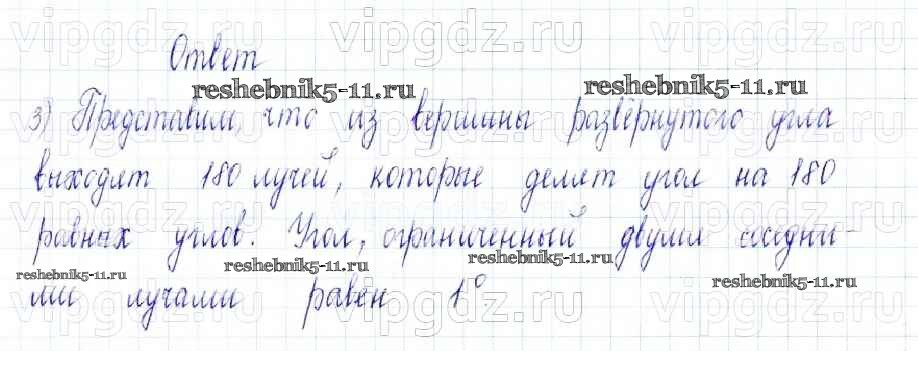 vipgdz.ru vipgdz.ru vipgdz.ru
Ответ
reshebnik5-11.ru reshebnik5-11.ru
3) Представим, что из вершины развёрнутого угла
vipgdz.ru vipgdz.ru vipgdz.ru
выходят 180 лучей, которые делят угол на 180
vipgdz.ru vipgdz.ru vipgdz.ru
равных углов. Угол, ограниченный двумя соседни-
reshebnik5-11.ru reshebnik5-11.ru reshebnik5-11.ru reshebnik5-11.ru
ми лучами равен 1°
vipgdz.ru vipgdz.ru vipgdz.ru